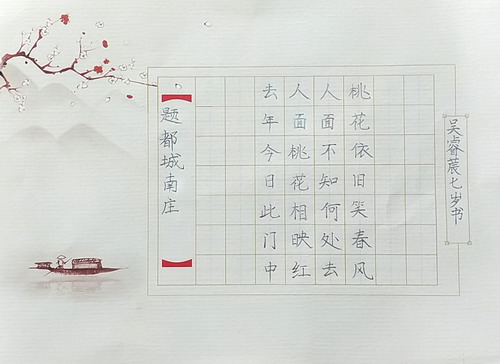 题都城南庄
去年今日此门中
人面桃花相映红
人面不知何处去
桃花依旧笑春风
吴睿莀七岁书